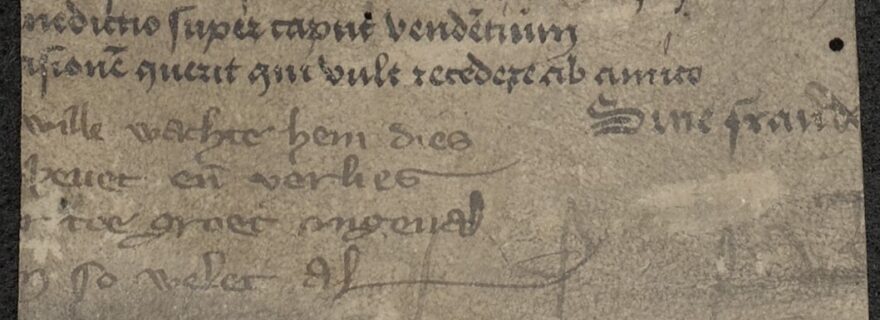 nedictio super caput vendētium
isionē querit qui vult recedere ab amico
Sine fraude
wille wachte hem dies
heuet en̄ verlies
toe groet ongeual
so welet al